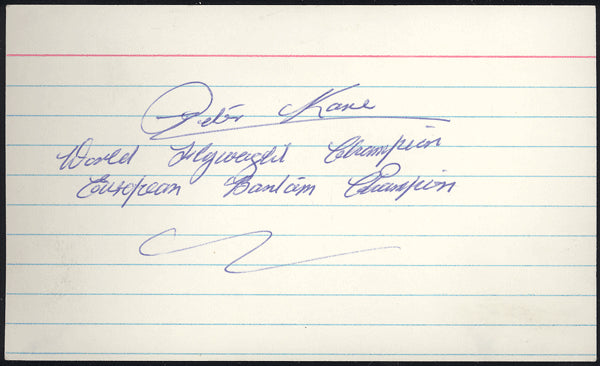 Peter Kane
World Flyweight Champion
European Bantam Champion